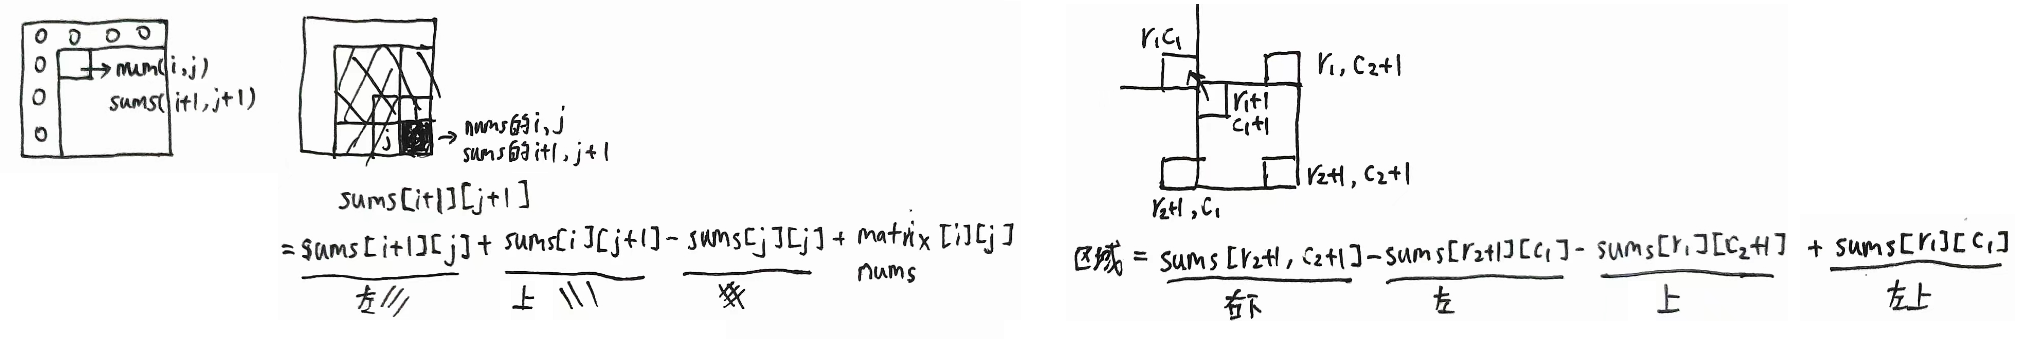 0 0 0 0
0
0
0
num(i,j)
sums(i+1,j+1)
j
nums的i,j
sums的i+1,j+1
sums[i+1][j+1]
=sums[i+1][j]+sums[i][j+1]-sums[j][j]+matrix[i][j]
nums
左 上
r1c1
r1,c2+1
r1+1
c1+1
r2+1,c2+1
r2+1,c1
区域=sums[r2+1,c2+1]-sums[r2+1][c1]-sums[r1][c2+1]+sums[r1][c1]
右下 左 上 左上